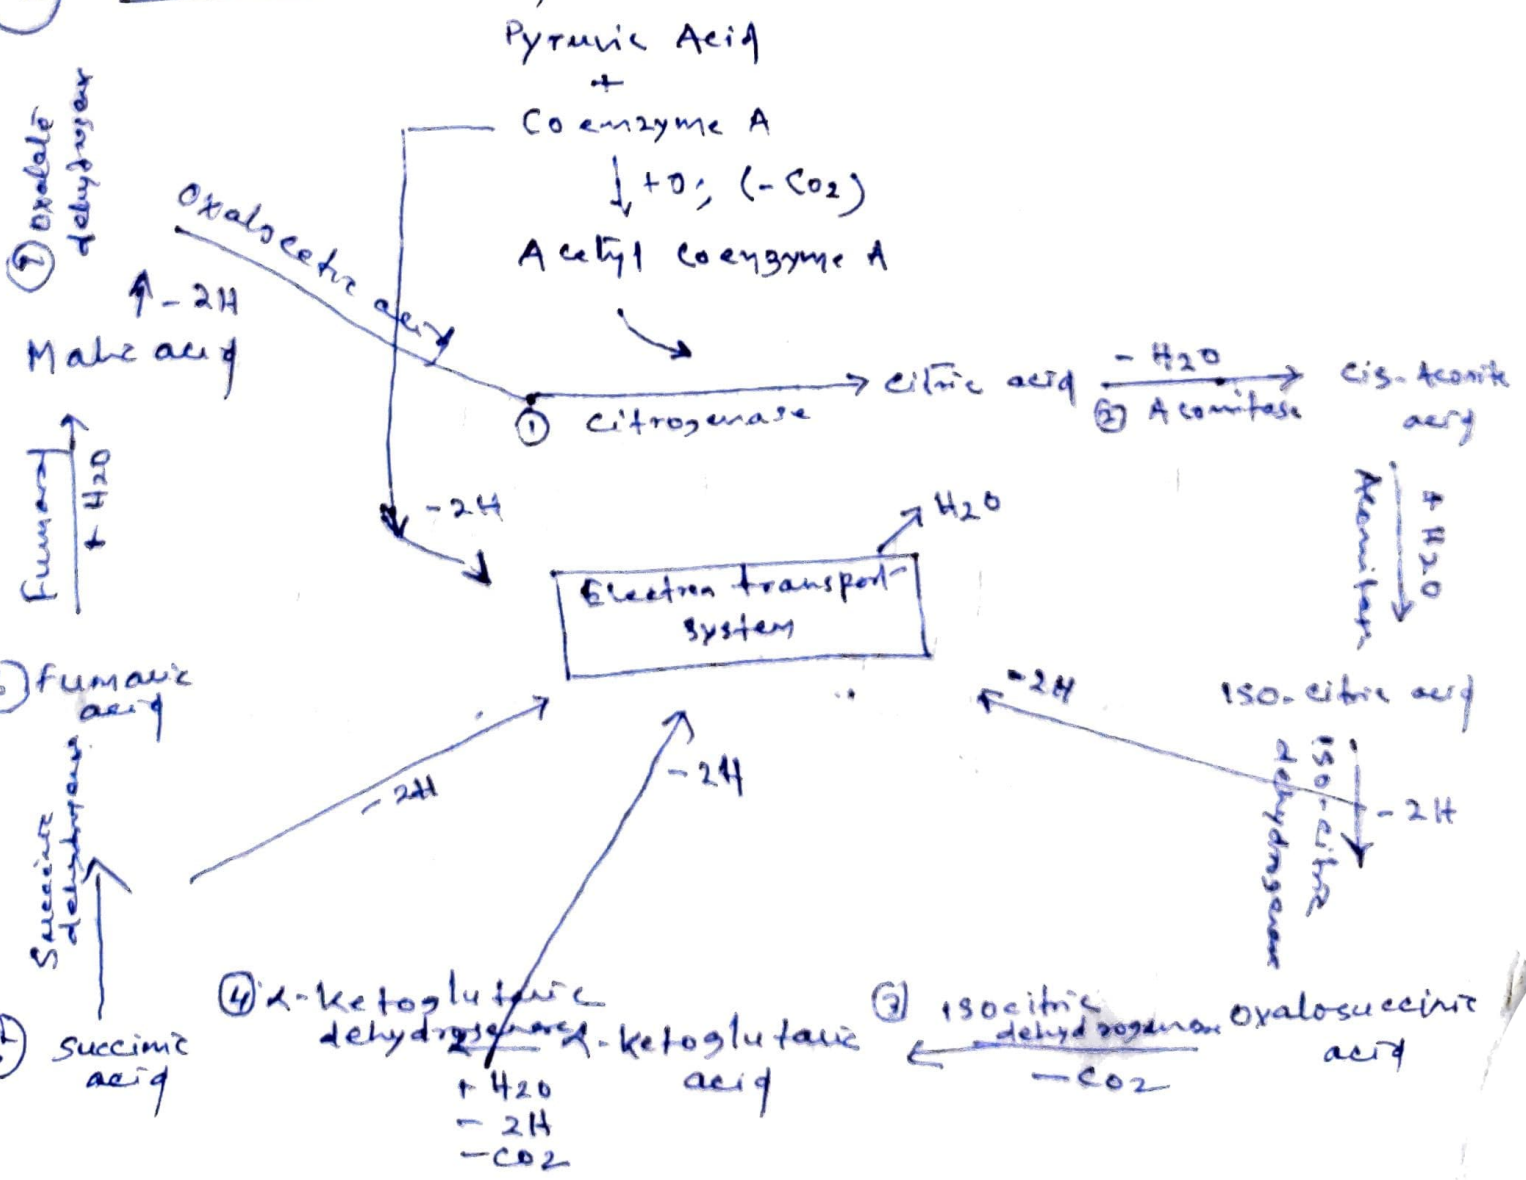 Pyruvic Acid
+
Coenzyme A
↓ +O; (-CO2)
Acetyl coenzyme A
⑦ Oxalate
dehydrogenase
Oxaloacetic acid
↑ - 2H
Malic acid
① Citrogenase
Citric acid
- H2O
② Aconitase
Cis-Aconitic
acid
+ H2O
Aconitase
+ H2O
- 2H
H2O
Electron transport
system
Fumaric
acid
- 2H
Iso-citric acid
- 2H
- 2H
Iso-citric
dehydrogenase
- 2H
Succinic
dehydrogenase
Succinic
acid
④ α-ketoglutaric
dehydrogenase
+ H2O
- 2H
- CO2
α-ketoglutaric
acid
③ isocitric
dehydrogenase
- CO2
Oxalosuccinic
acid